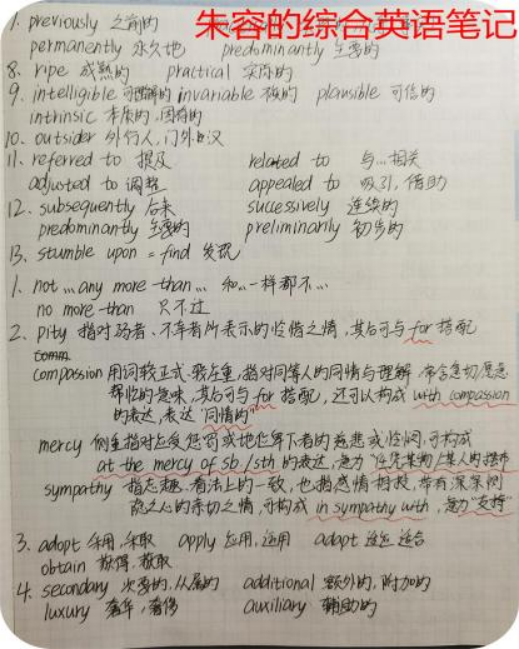 朱容的综合英语笔记
1. previously 之前的
permanently 永久地 predominantly 主要的
8. ripe 成熟的 practical 实际的
9. intelligible 可理解的 invariable 不变的 plausible 可信的
intrinsic 本质的,固有的
10. outsider 外行人,门外汉
11. referred to 提及 related to 与…相关
adjusted to 调整 appealed to 吸引,借助
12. subsequently 后来 successively 连续的
predominantly 主要的 preliminarily 初步的
13. stumble upon = find 发现
1. not … any more than … 和…一样都不…
no more than 只不过
2. pity 指对弱者、不幸者所表示的怜惜之情,其后可与 for 搭配
compassion 用词较正式、较庄重,指对同等人的同情与理解,常含急切愿意
帮忙的意味,其后可与 for 搭配,还可以构成 with compassion
的表达,表达"同情的"
mercy 侧重指对应受惩罚或地位卑下者的慈悲或怜悯,可构成
at the mercy of sb/sth 的表达,意为"任凭某物/某人的摆布
sympathy 指志趣、看法上的一致,也指感情相投,带有深深恻
隐之心的亲切之情,可构成 in sympathy with,意为"支持"
3. adopt 采用,采取 apply 应用,运用 adapt 适应 适合
obtain 获得,获取
4. secondary 次要的,从属的 additional 额外的,附加的
luxury 奢华,奢侈 auxiliary 辅助的